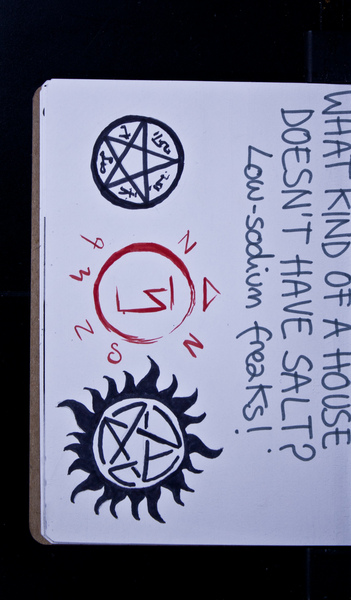 WHAT KIND OF A HOUSE
DOESN'T HAVE SALT?
Low-sodium freaks!